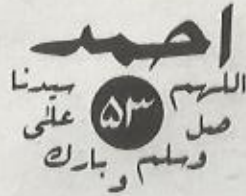 احمد
اللهم
صل
وسلم
و
بارك
على
سيدنا
۵۳